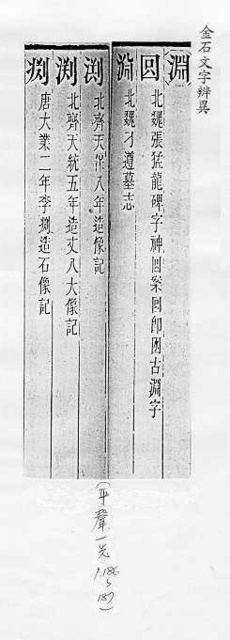 金石文字辨異
淵
囬 北魏張猛龍碑字神囬案囬即𡇌古淵字
渊 北魏刁遵墓志
渕 北齊天保八年造像記
渕 北齊天統五年造丈八大像記
唐大業二年李渕造石像記
(平聲一先
p.186
187)